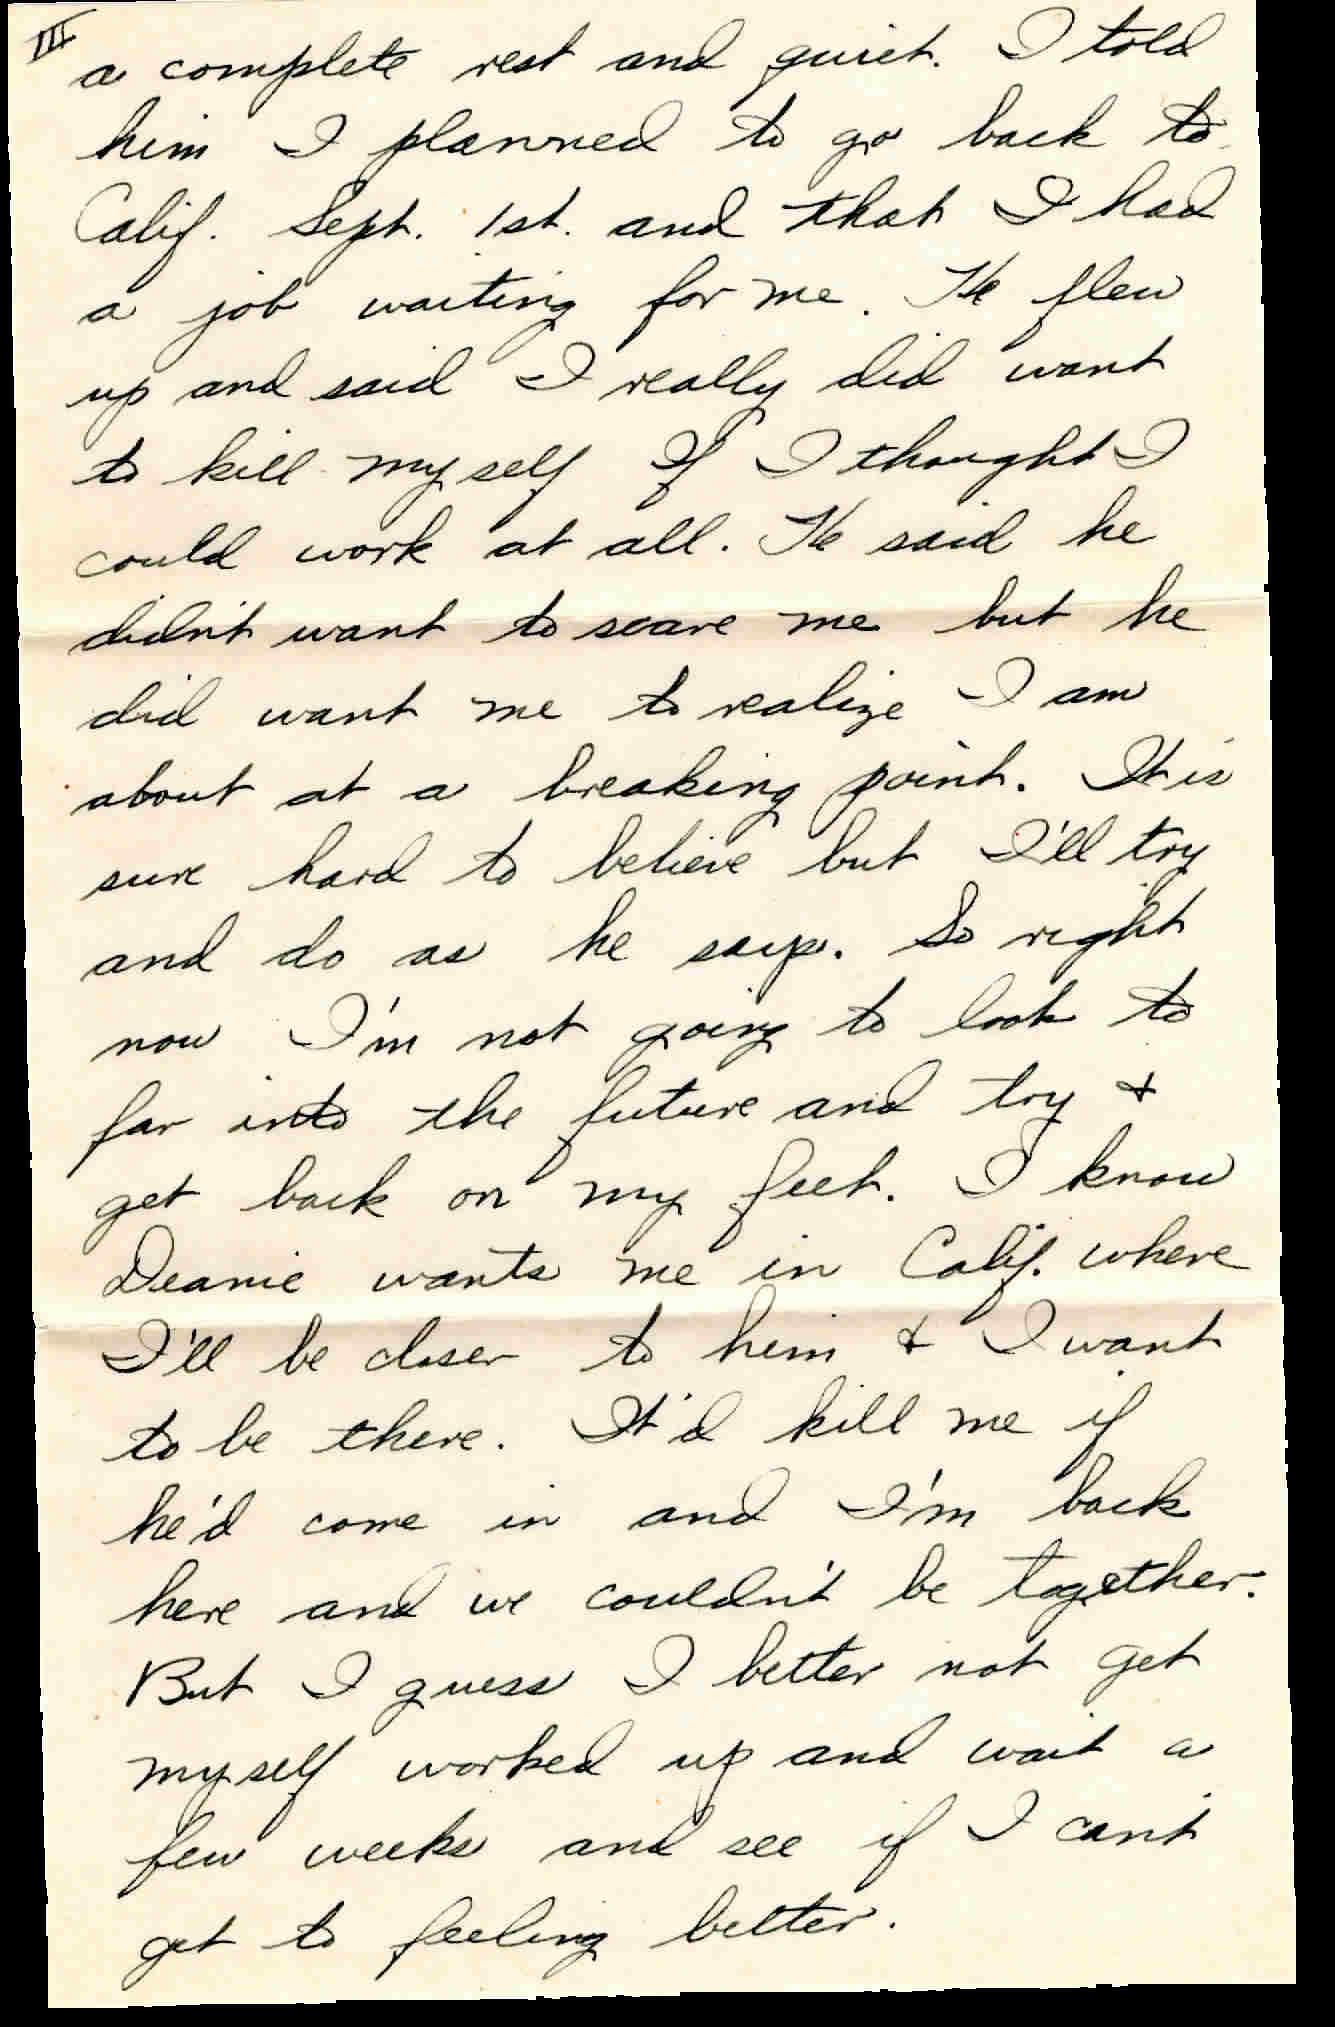 III
a complete rest and quiet. I told
him I planned to go back to
Calif. Sept. 1st. and that I had
a job waiting for me. He flew
up and said I really did want
to kill myself If I thought I
could work at all. He said he
didn't want to scare me but he
did want me to realize I am
about at a breaking point. It is
sure hard to believe but I'll try
and do as he says. So right
now I'm not going to look to
far into the future and try &
get back on my feet. I know
Deanie wants me in Calif. where
I'll be closer to him & I want
to be there. It'd kill me if
he'd come in and I'm back
here and we couldn't be together.
But I guess I better not get
myself worked up and wait a
few weeks and see if I can't
get to feeling better.